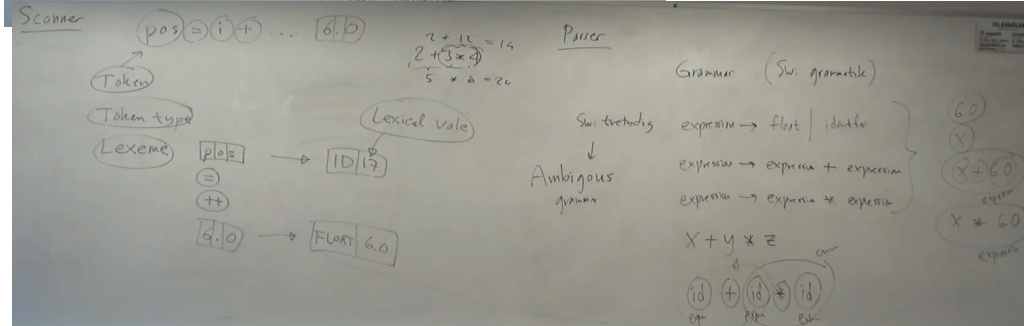 Scanner
pos = i + .... 6.0
Token
Token type
Lexeme
pos → ID 17
=
++
6.0 → FLOAT 6.0
Lexical vale
2 + 12 = 14
2 + (3 * 4)
5 * 4 = 20
Parser
Grammar (Sw: grammatik)
Sw: tvetydig
↓
Ambigous
grammar
expression → float | identifier
expression → expression + expression
expression → expression * expression
x + y * z
id + id * id
expr expr expr
6.0
x
x + 6.0
expression
x * 6.0
expression